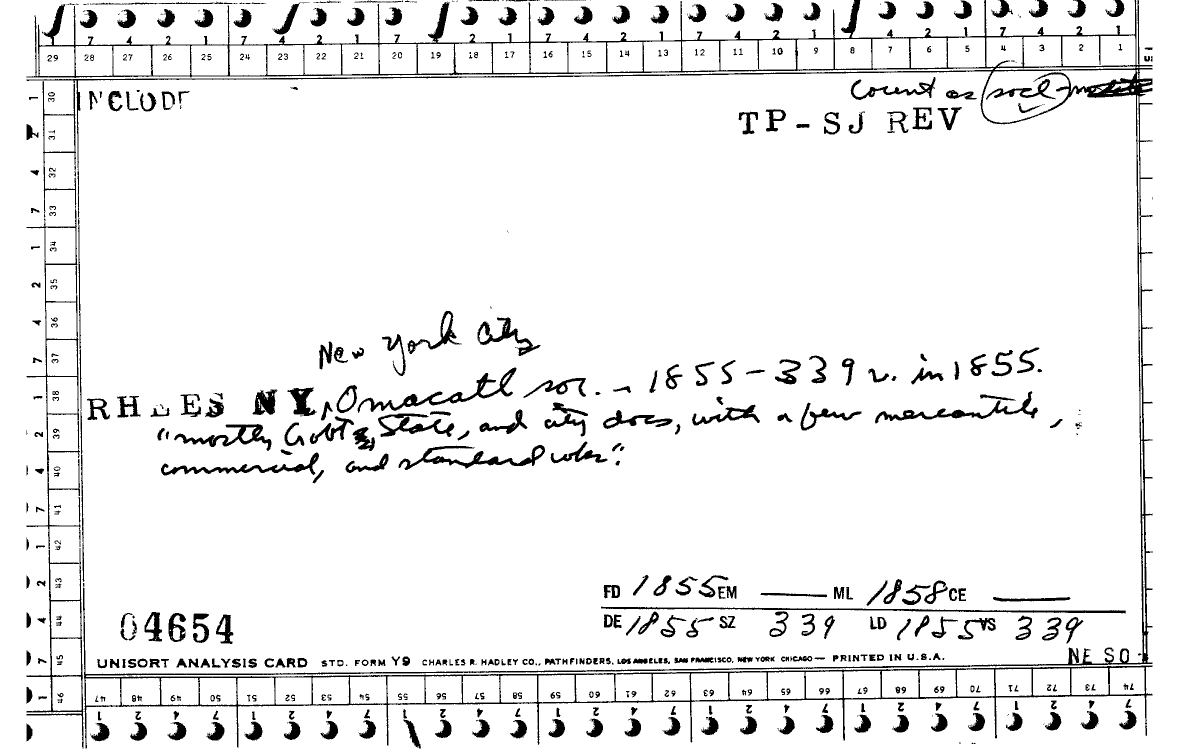 7 4 2 1 7 4 2 1 7 4 2 1 7 4 2 1 7 4 2 1 7 4 2 1 7 4 2 1
29 28 27 26 25 24 23 22 21 20 19 18 17 16 15 14 13 12 11 10 9 8 7 6 5 4 3 2 1
Count as socl-
INCLUDE
TP-SJ REV
1 30
2 31
4 32
7 33
1 34
2 35
4 36
7 37
1 38
2 39
4 40
7 41
1 42
2 43
4 44
7 45
1 46
New York City
RHEES NY, Omacatl soc. - 1855-339 v. in 1855.
"mostly Gobt, State, and city docs, with a few mercantile,
commercial, and standard wks".
FD 1855 EM ML 1858 CE
DE 1855 SZ 339 LD 1855 VS 339
04654
NE SO
UNISORT ANALYSIS CARD STD. FORM Y9 CHARLES R. HADLEY CO., PATHFINDERS, LOS ANGELES, SAN FRANCISCO, NEW YORK CHICAGO — PRINTED IN U.S.A.
47 48 49 50 51 52 53 54 55 56 57 58 59 60 61 62 63 64 65 66 67 68 69 70 71 72 73 74
1 2 4 7 1 2 4 7 1 2 4 7 1 2 4 7 1 2 4 7 1 2 4 7 1 2 4 7